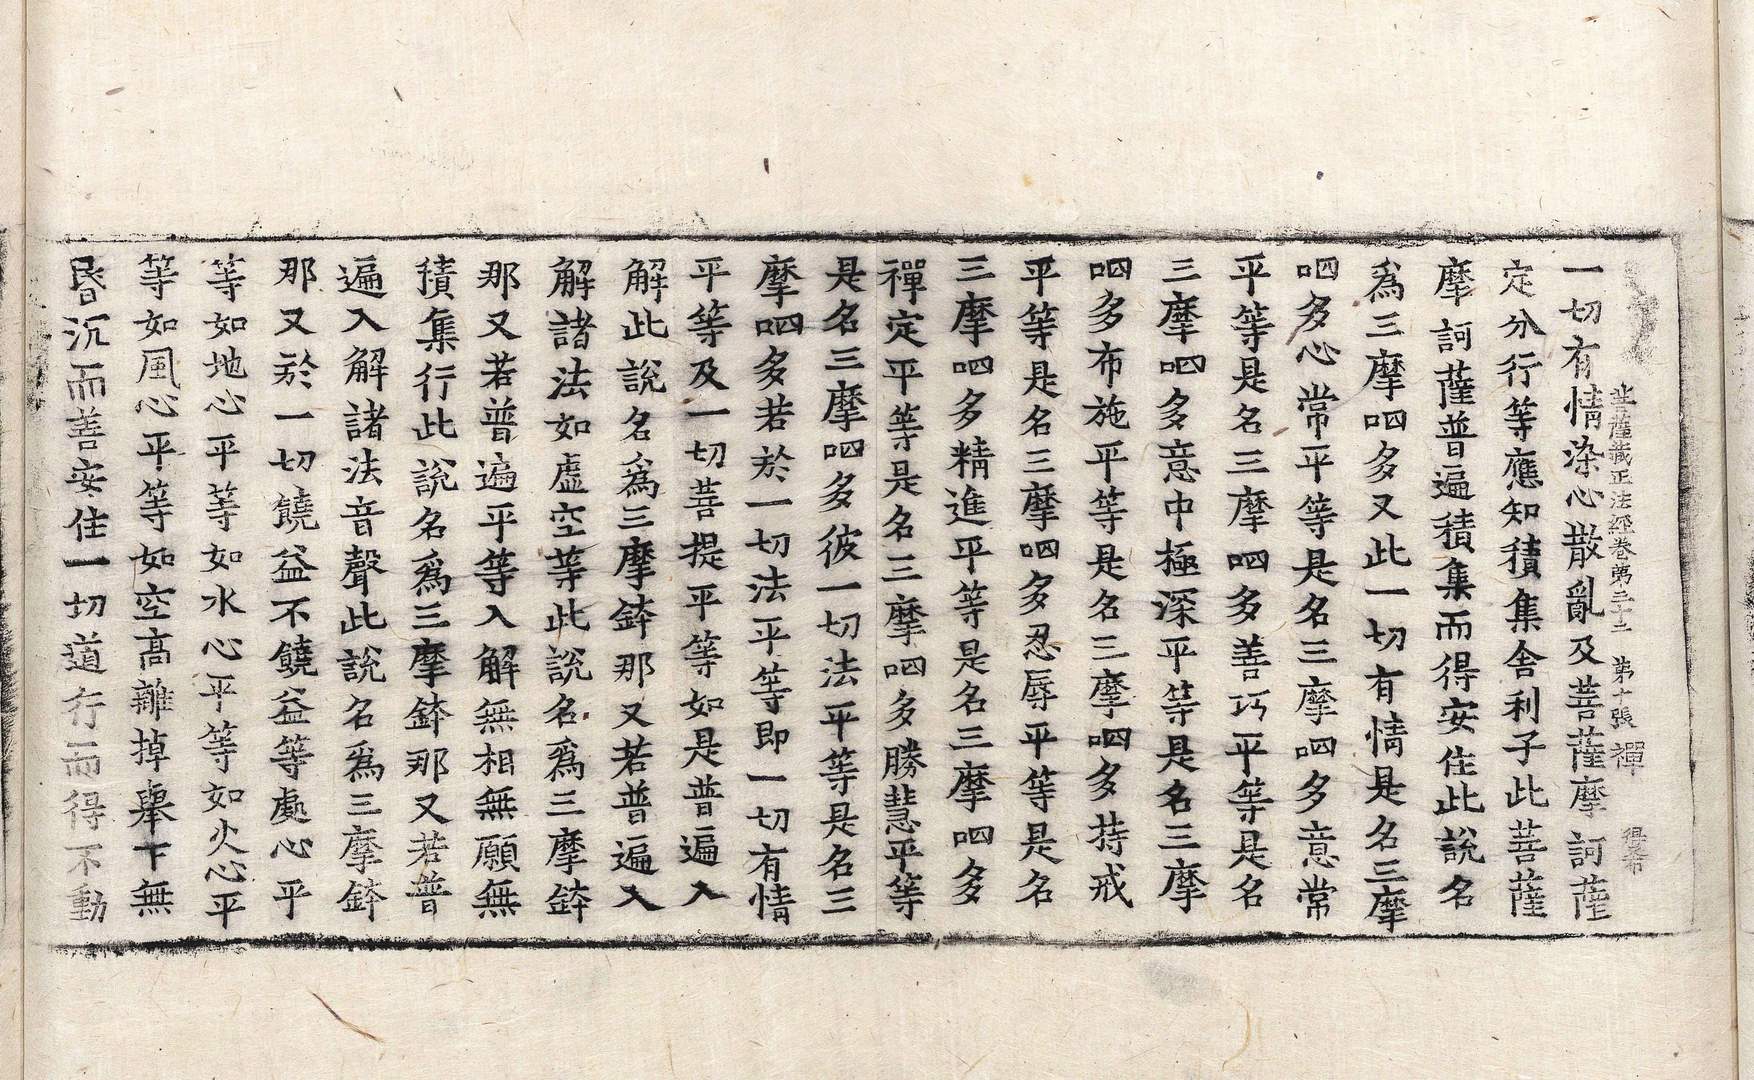 菩薩藏正法經卷第三十二 第十張 禪
一切有情染心散亂及菩薩摩訶薩
定分行等應知積集舍利子此菩薩
摩訶薩普遍積集而得安住此說名
爲三摩呬多又此一切有情是名三摩
呬多心常平等是名三摩呬多意常
平等是名三摩呬多善巧平等是名
三摩呬多意中極深平等是名三摩
呬多布施平等是名三摩呬多持戒
平等是名三摩呬多忍辱平等是名
三摩呬多精進平等是名三摩呬多
禪定平等是名三摩呬多勝慧平等
是名三摩呬多彼一切法平等是名三
摩呬多若於一切法平等即一切有情
平等及一切菩提平等如是普遍入
解此說名爲三摩鉢那又若普遍入
解諸法如虛空等此說名爲三摩鉢
那又若普遍平等入解無相無願無
積集行此說名爲三摩鉢那又若普
遍入解諸法音聲此說名爲三摩鉢
那又於一切饒益不饒益等處心平
等如地心平等如水心平等如火心平
等如風心平等如空高離掉舉下無
昬沉而善安住一切道行而得不動